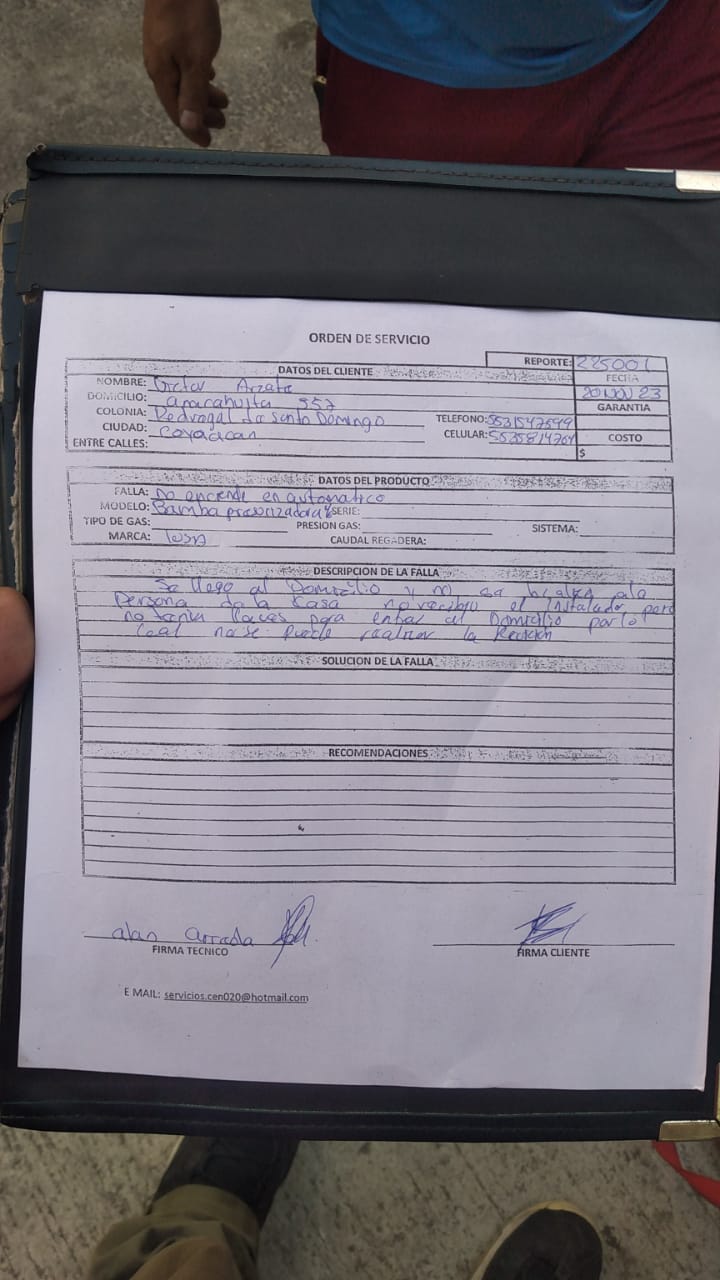 ORDEN DE SERVICIO
REPORTE: 225001
DATOS DEL CLIENTE
FECHA
NOMBRE: Victor Arzate
20 NOV 23
DOMICILIO: anacahuita 557
GARANTIA
COLONIA: Pedregal de Santo Domingo
TELEFONO:
CIUDAD: Coyoacan
CELULAR:
COSTO
ENTRE CALLES:
$
DATOS DEL PRODUCTO
FALLA: no enciende en automatico
MODELO: Bamba presurizadora SERIE:
TIPO DE GAS: PRESION GAS: SISTEMA:
MARCA: CAUDAL REGADERA:
DESCRIPCION DE LA FALLA
Se llego al Domicilio y no se
Persona de la Casa no recibio el Instalador pero
no tenia llaves para entrar al Domicilio por lo
Cual no se puede realizar la Revicion
SOLUCION DE LA FALLA
RECOMENDACIONES
alan arreola
FIRMA TECNICO
FIRMA CLIENTE
E MAIL: servicios.cen020@hotmail.com